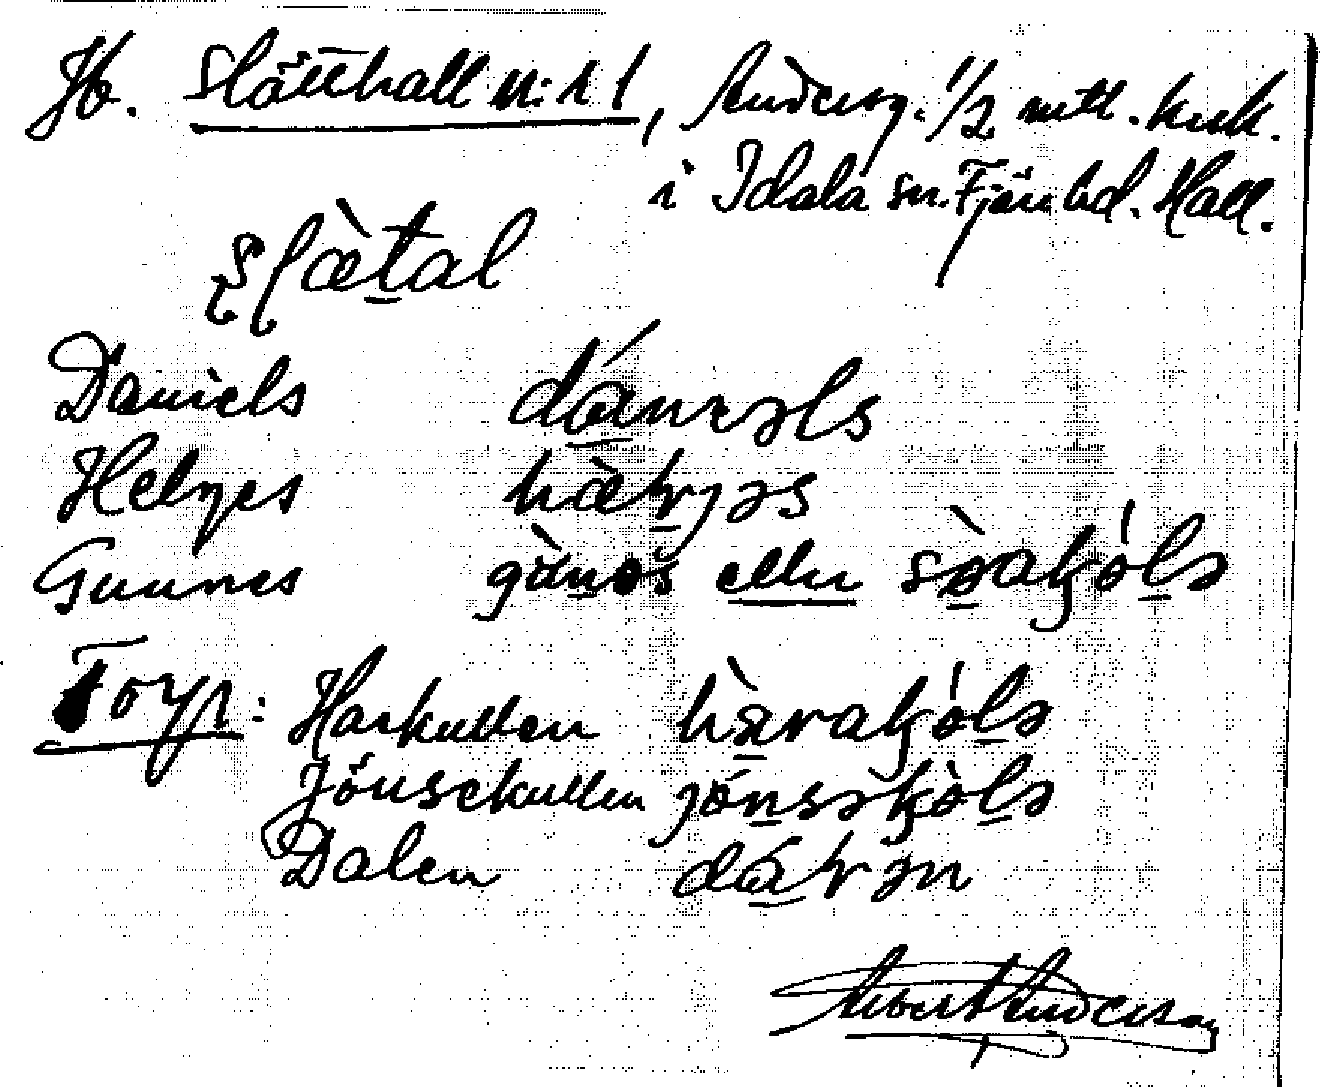 Hb. Slätthall n:r 1, Anderzy. 1/2 mtl. krsk.
i Idala sn. Fjäre hd. Hall.
slæ̀tal
Daniels dánɛəls
Helges hæ̀lɟəs
Gunnes gùnəs eller sø̀rakɵ́lə
Torp: Harkullen hàrakɵ́lə
Jönsekullen jɵ́nsəkɵ̀lə
Dalen dálən
Albert Anderson